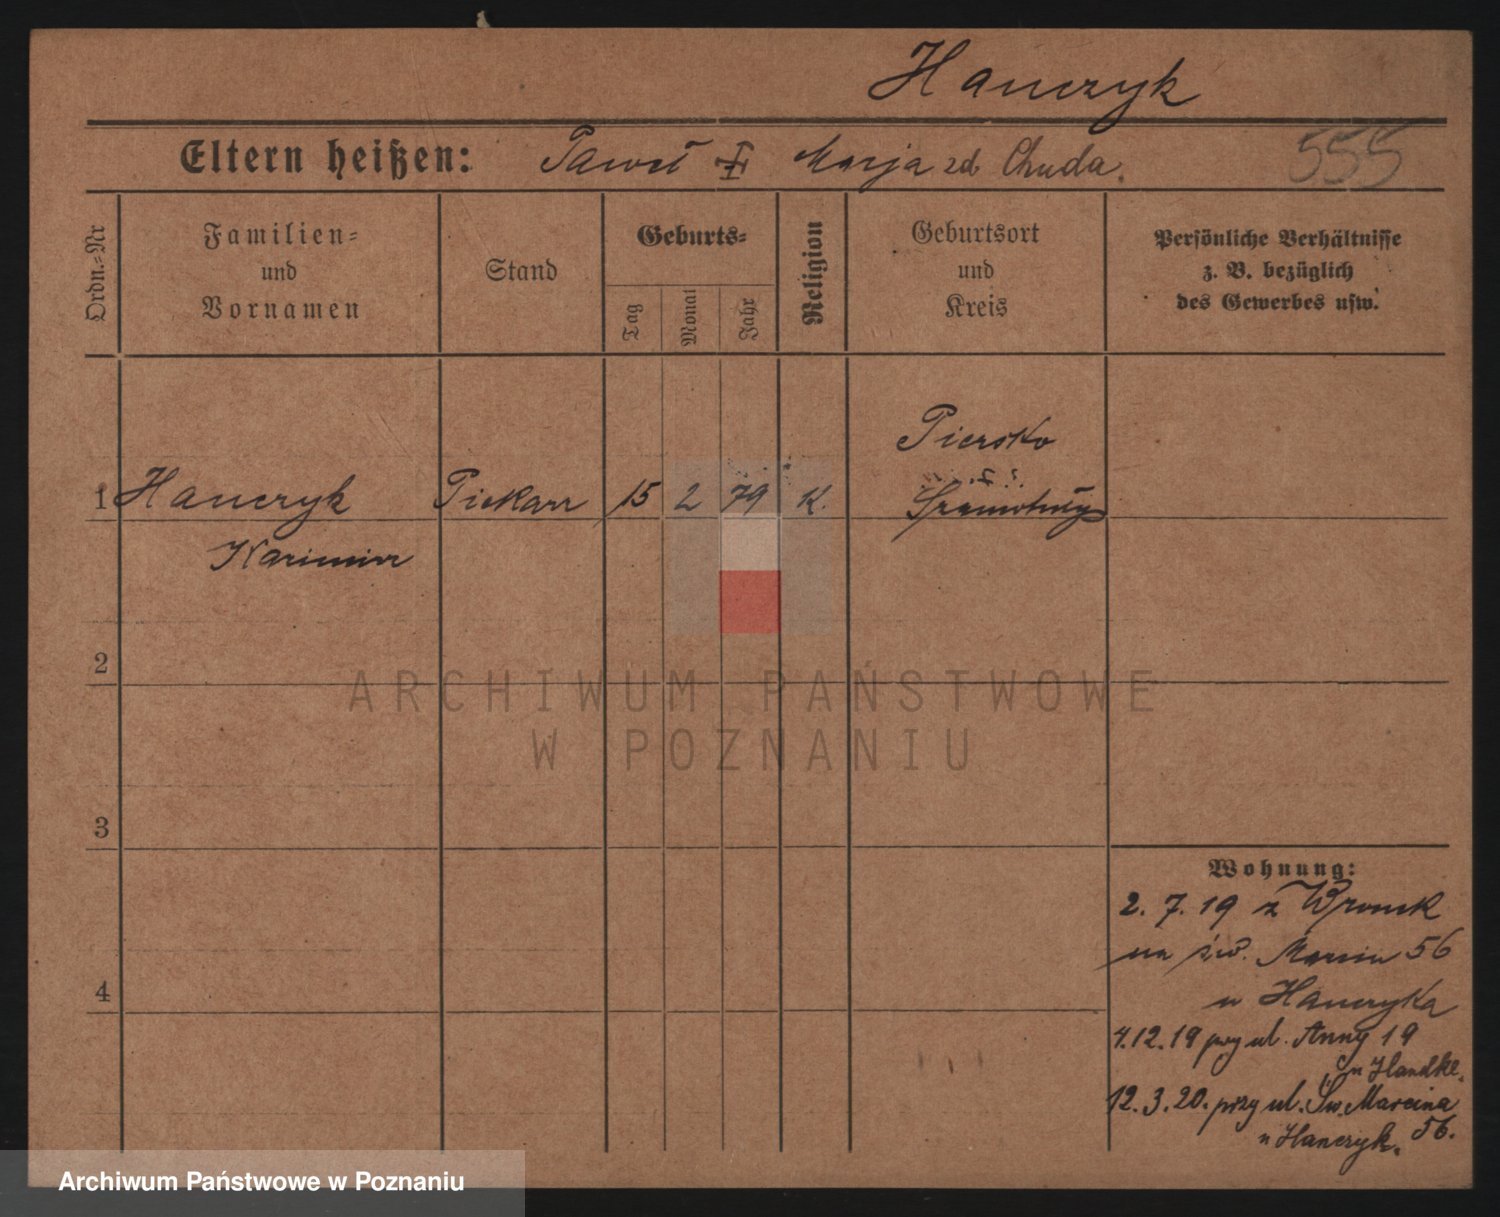 Hanczyk
Eltern heißen: Paweł Marja zd Chuda.
555
Ordn.=Nr
Familien=
und
Vornamen
Stand
Geburts=
Tag
Monat
Jahr
Religion
Geburtsort
und
Kreis
Persönliche Verhältnisse
z. B. bezüglich
des Gewerbes usw.
Piersko
1 Hanczyk Piekarz 15 2 79 K. Szamotuły
Kazimierz
2
ARCHIWUM PAŃSTWOWE
W POZNANIU
3
Wohnung:
2. 7. 19 z Wronek
na św. Marcin 56
u Hanczyka
4
4.12.19 przy ul. Anny 19
u Handke.
12.3.20. przy ul. Św. Marcina
56.
u Hanczyk.
Archiwum Państwowe w Poznaniu